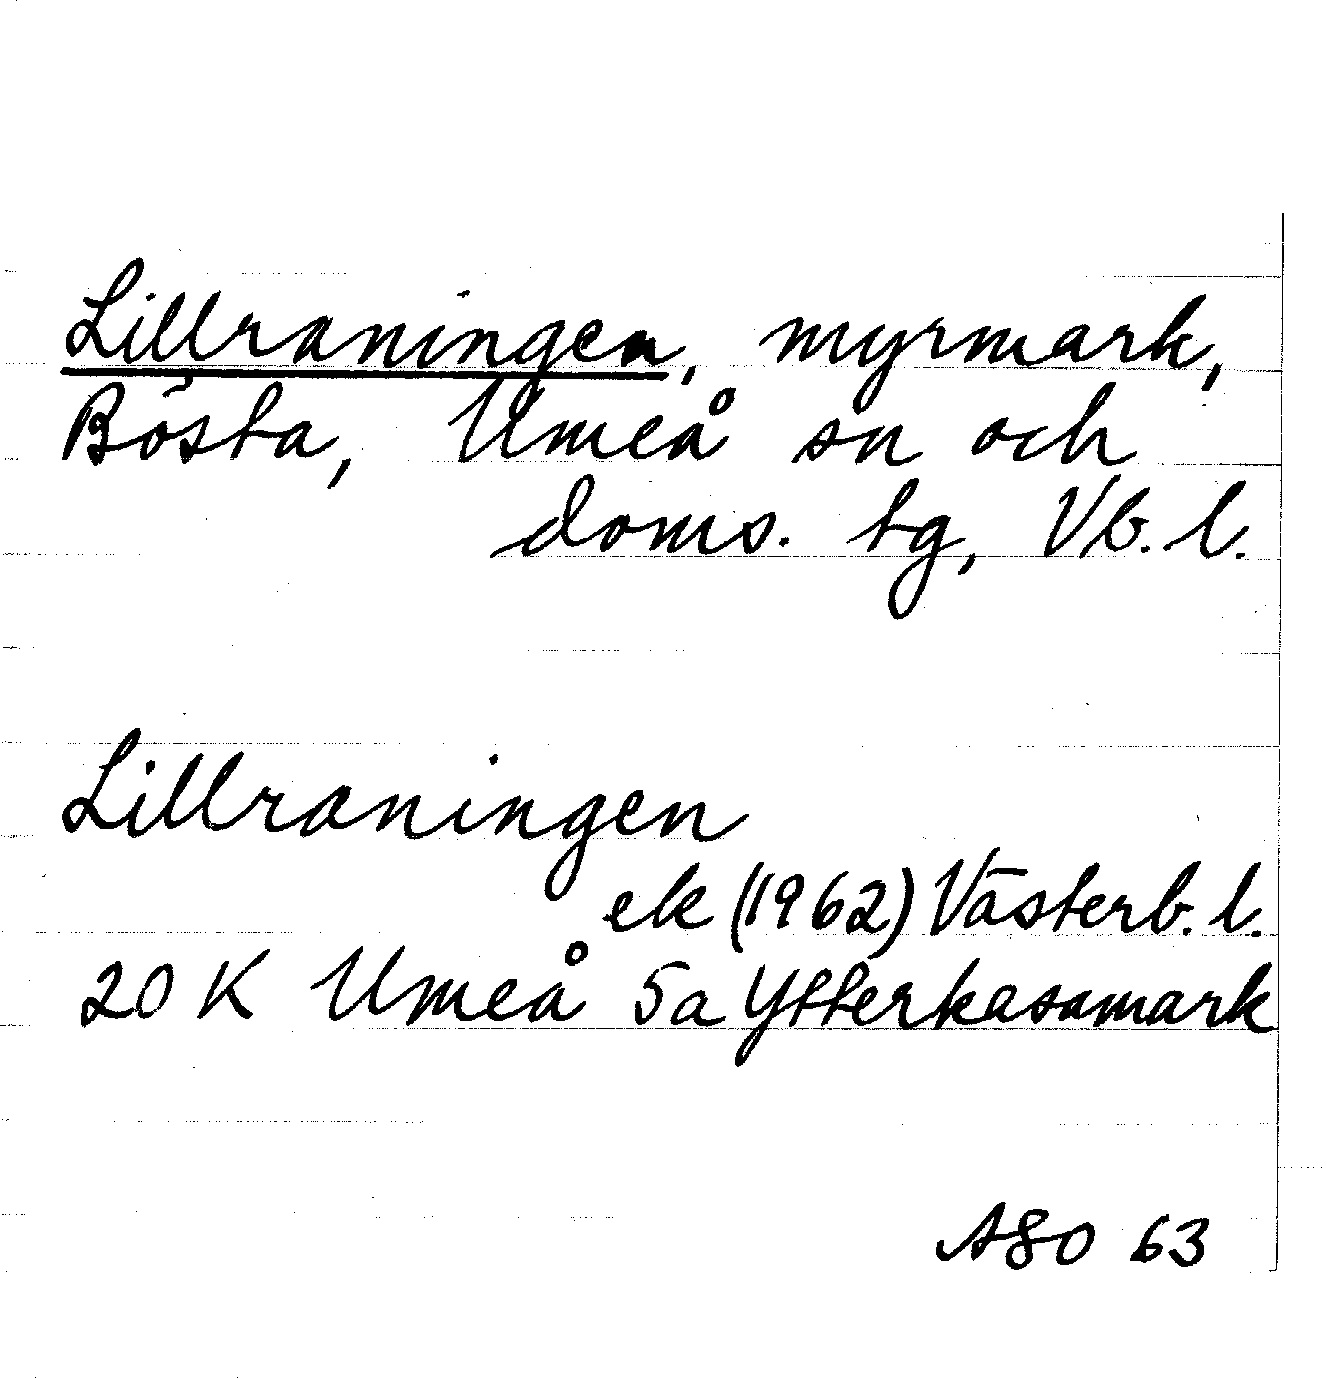 Lillraningen, myrmark,
Bösta, Umeå sn och
doms. tg, Vb. l.
Lillraningen
ek (1962) Västerb. l.
20 K Umeå 5a Ytterkasamark
ASO 63